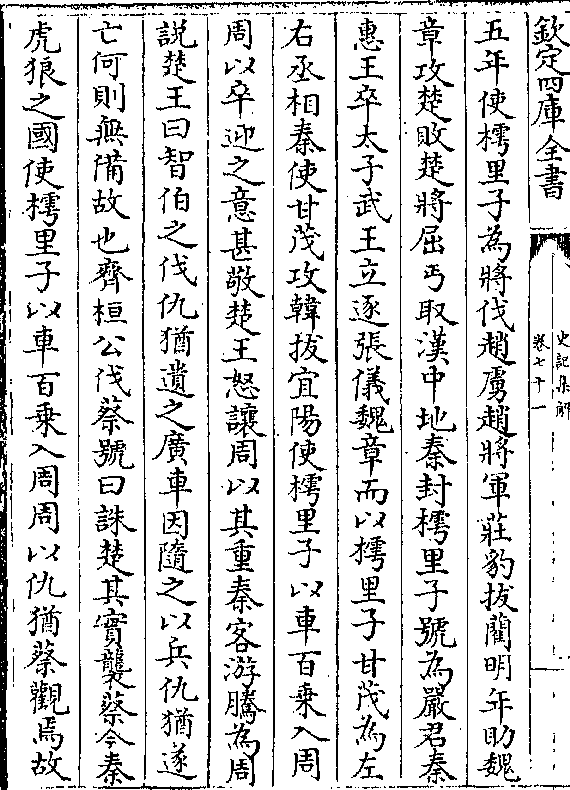 欽定四庫全書
史記集解
卷七十一
五年使樗里子為將伐趙虜趙將軍莊豹拔藺明年助魏
章攻楚敗楚將屈丐取漢中地秦封樗里子號為嚴君秦
惠王卒太子武王立逐張儀魏章而以樗里子甘茂為左
右丞相秦使甘茂攻韓拔宜陽使樗里子以車百乗入周
周以卒迎之意甚敬楚王怒讓周以其重秦客游騰為周
説楚王曰智伯之伐仇猶遺之廣車因隨之以兵仇猶遂
亡何則無備故也齊桓公伐蔡號曰誅楚其實襲蔡今秦
虎狼之國使樗里子以車百乗入周周以仇猶蔡觀焉故